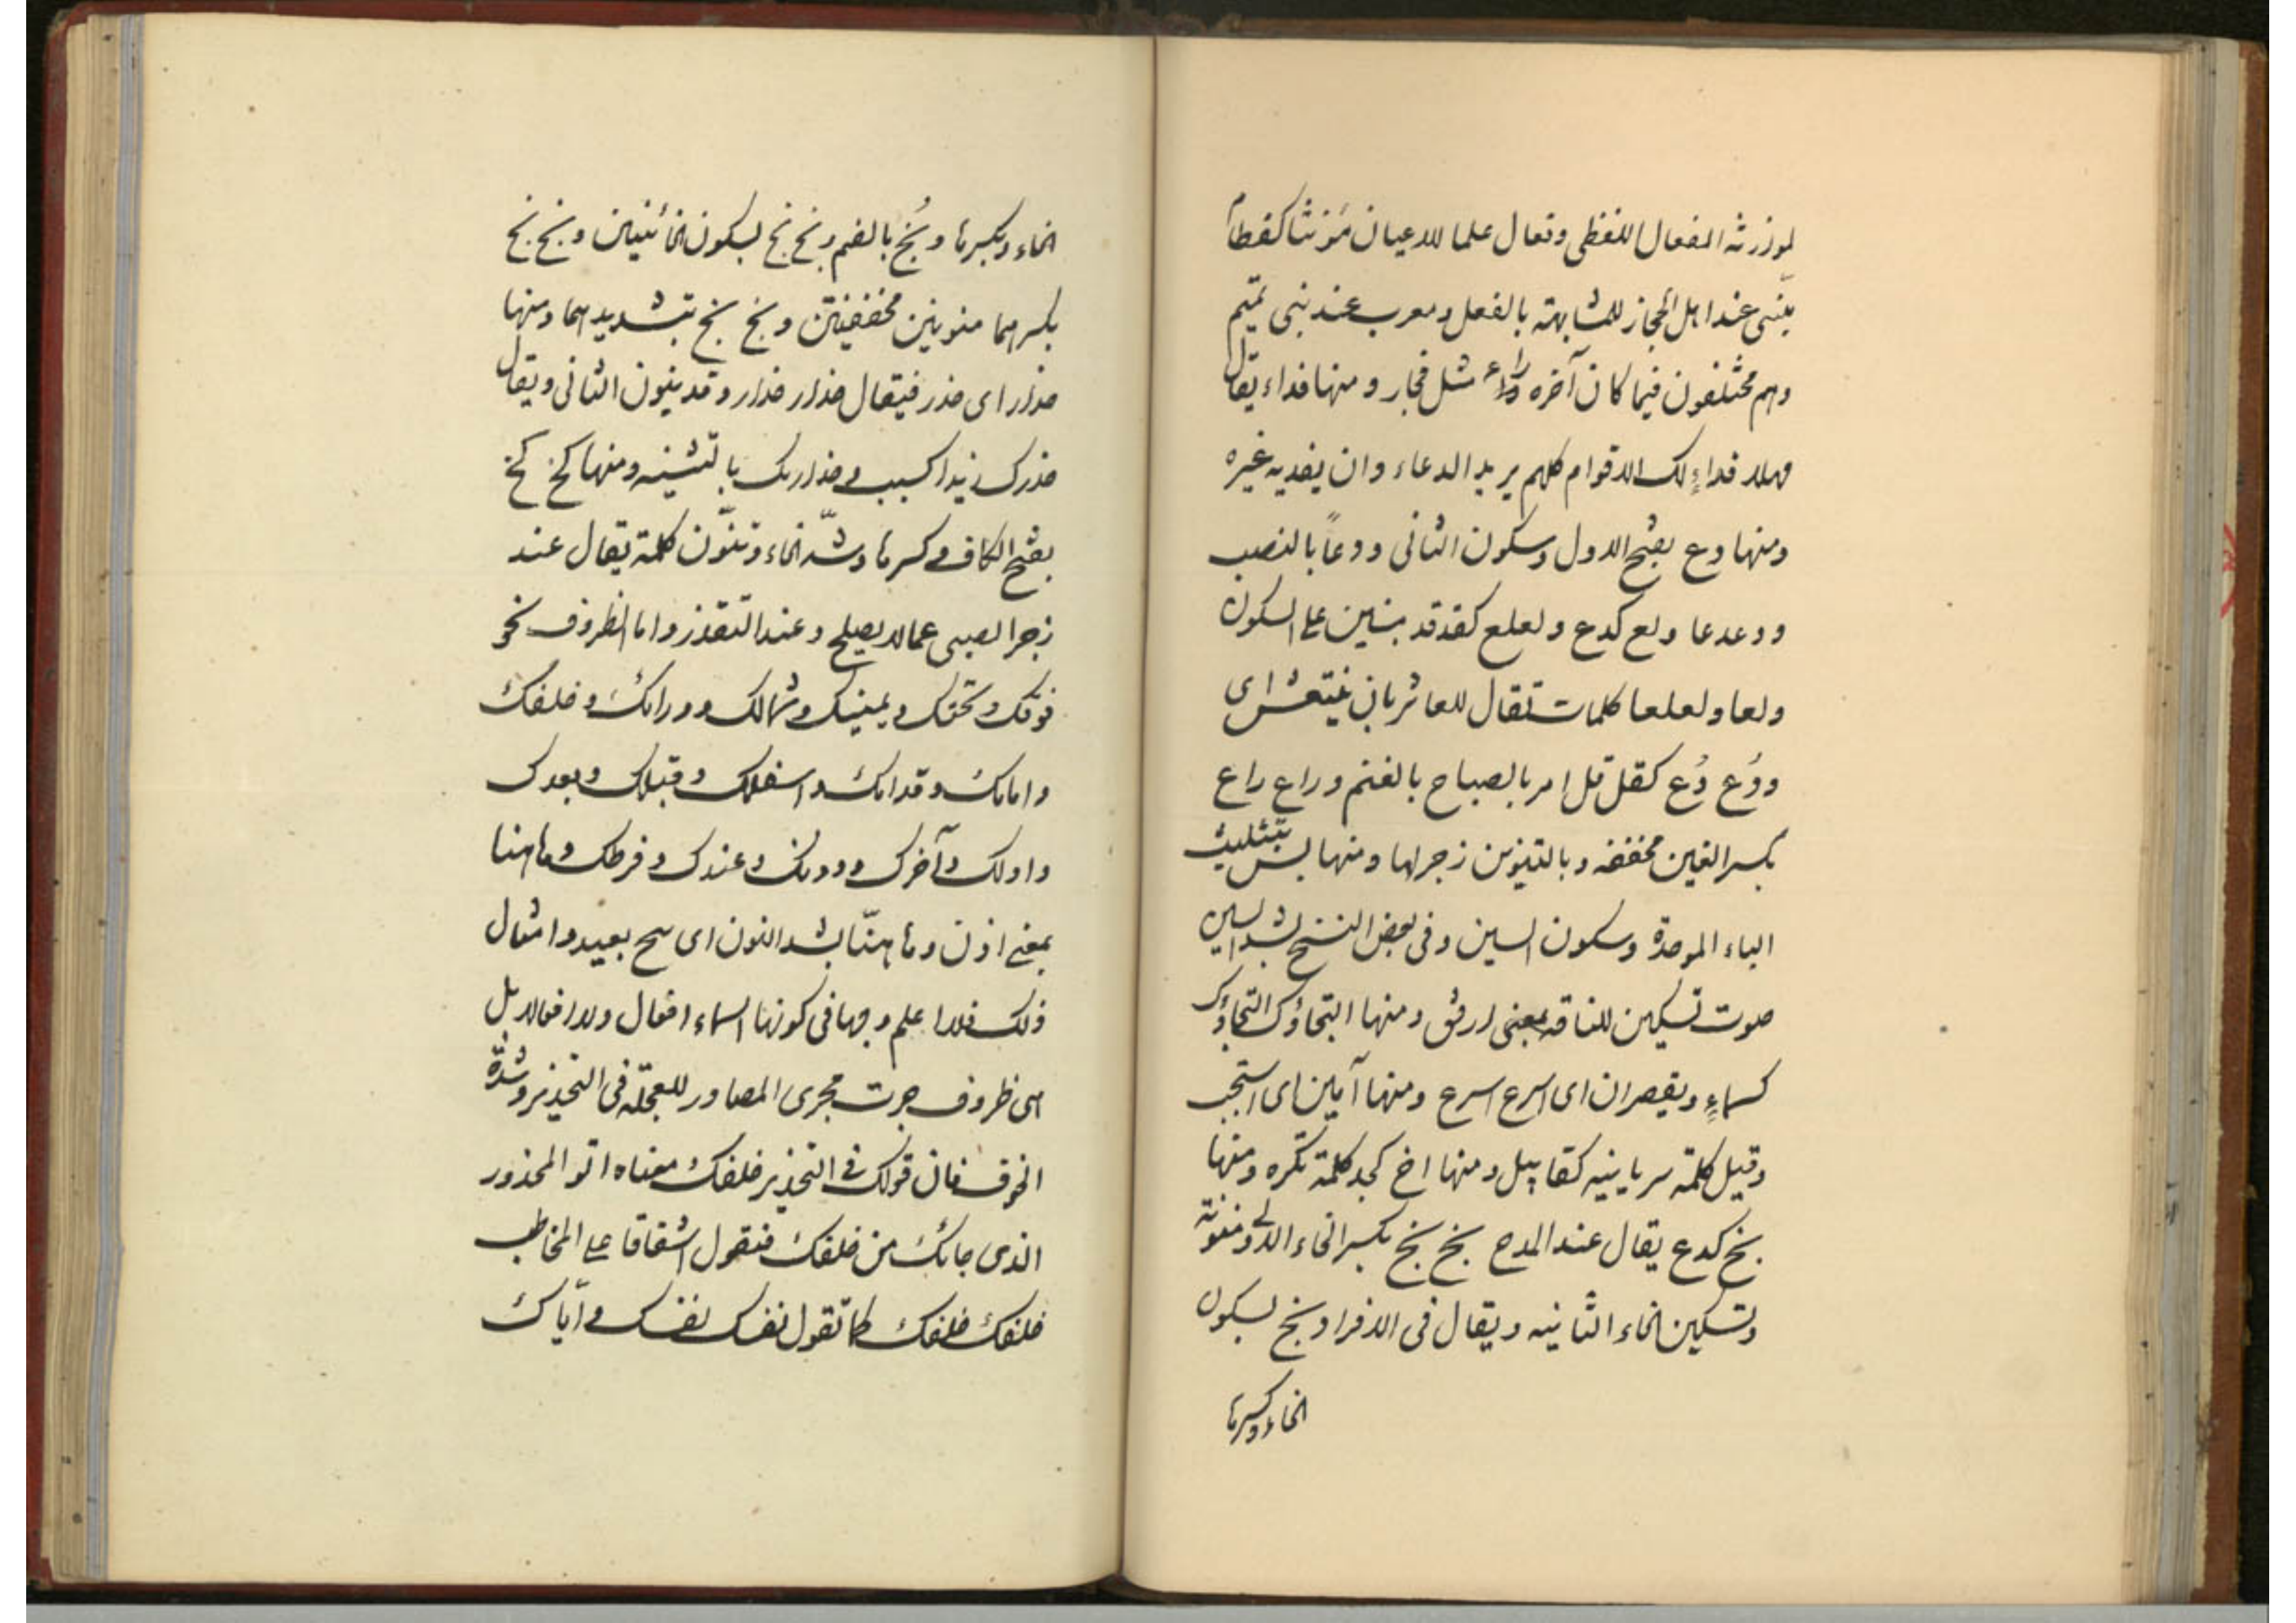 لموازنته افعال اللفظى وفعال علما للاعيان مؤنثا كقطام
مبنى عند اهل الحجاز للمشابهة بالفعل ومعرب عند بنى تميم
وهم مختلفون فيما كان آخره راء مثل فجار ومنها فداء يقال
مهلا فداءٍ لك الاقوام كلهم يريد الدعاء وان يفديه غيره
ومنها دع بفتح الاول وسكون الثانى ودعاً بالنصب
ودعدعا ولع كدع ولعلع كقدقد مبنيين على السكون
ولعا ولعلعا كلمات تقال للعاثر بان ينتعش اى
ودُع دُع كقل قل امر بالصياح بالغنم وراع راع
بكسر العين مخففه وبالتنوين زجر لها ومنها بس بتثليث
الباء الموحدة وسكون السين وفى بعض النسخ بشد السين
صوت تسكين للناقه بمعنى ارفق ومنها النجاؤك النجاؤك
كسماءٍ ويقصران اى اسرع اسرع ومنها آمين اى استجب
وقيل كلمة سريانيه كقابيل ومنها اخ كجد كلمة تكره ومنها
بخ كدع يقال عند المدح بخ بخ بكسر الخاء الاولى ومنونة
وتسكين الخاء الثانيه ويقال فى الافراد بخ بسكون
الخاء وكسرها
الخاء وبكسرها وبُخ بالضم وبخ بخ بسكون الخائنين وبخ بخ
بكسرهما منونين مخففين وبخ بخ بتشديدهما ومنها
حذار اى حذر فيقال حذار حذار وقد ينون الثانى ويقال
حذرك زيدا كسبب وحذاريك بالتثنيه ومنها كخ كخ
بفتح الكاف وكسرها وشد الخاء وتنوّن كلمة يقال عند
زجر الصبى عما لا يصلح وعند التقذر واما الظروف نحو
فوقك وتحتك ويمينك وشمالك وورائك وخلفك
وامامك وقدامك واسفلك وقبلك وبعدك
واولك وآخرك ودونك وعندك وفرطك وهاهنا
بمعنى اذن وهاهنّا بشد النون اى تنح بعيدا وامثال
ذلك فلا اعلم وجها فى كونها اسماء افعال ولا افعالا بل
هى ظروف جرت مجرى المصادر للعجلة فى التحذير وشدة
الخوف فان قولك فى التحذير خلفك معناه اتق المحذور
الذى جائك من خلفك فتقول اشفاقا على المخاطب
خلفك خلفك كما تقول نفسك نفسك واياك